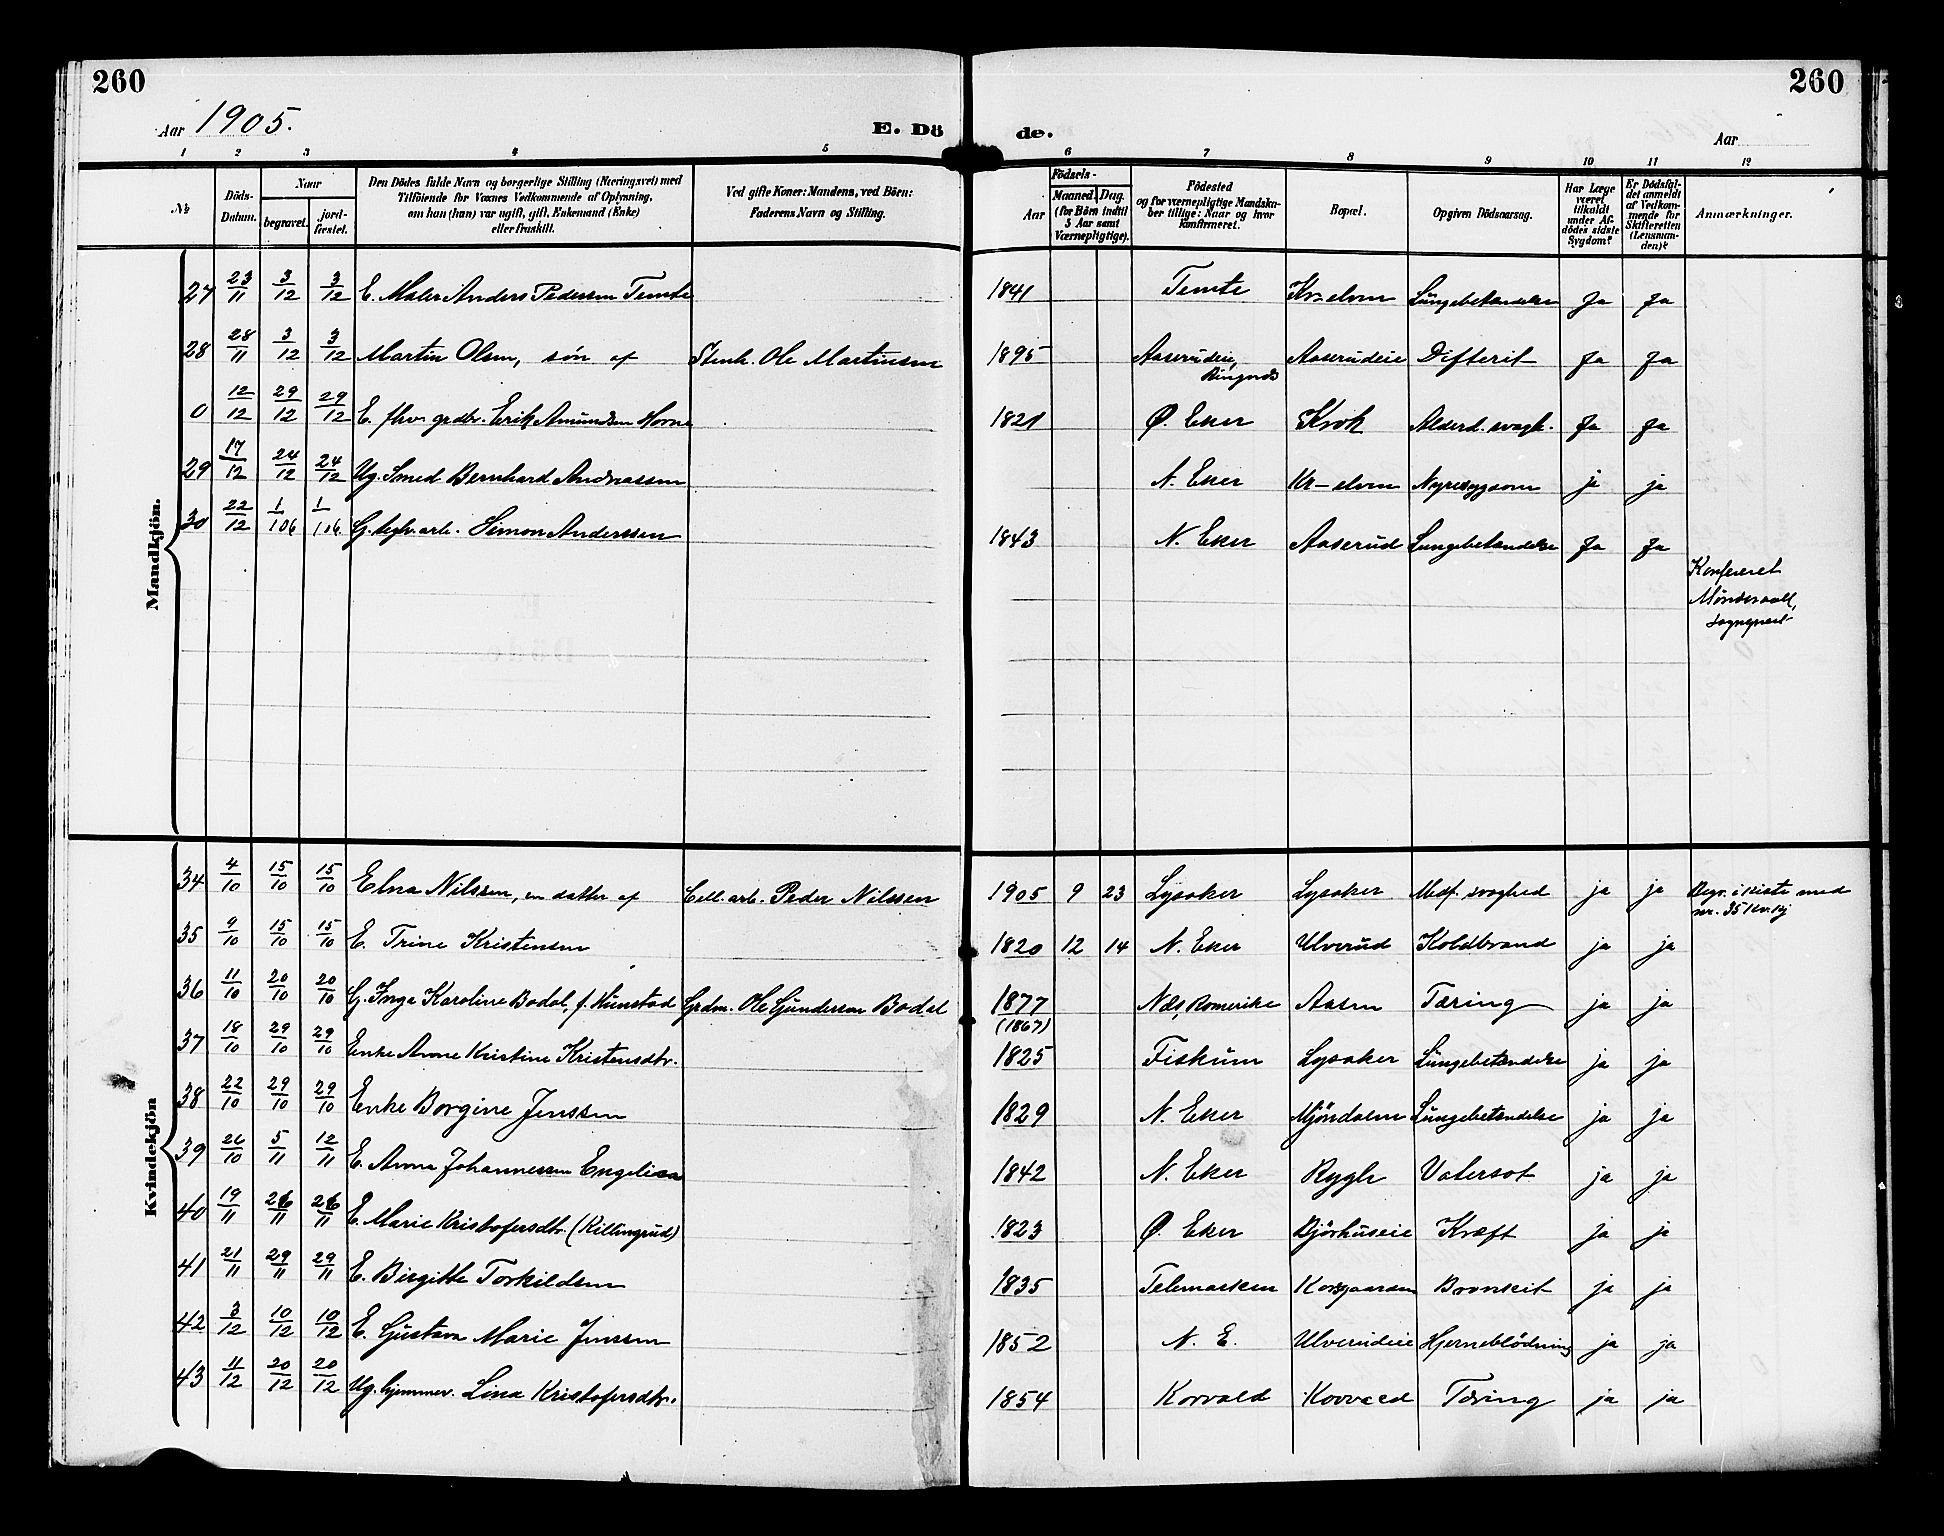 260
260
Aar 1905.
E. Dö
de.
Aar
1 2 3 4 5 6 7 8 9 10 11 12
№
Döds-Datum.
Naar
begravet.
jord-fæstet.
Den Dödes fulde Navn og borgerlige Stilling (Næringsvei) med
Tilföiende for Voxnes Vedkommende af Oplysning,
om han (hun) var ugift, gift, Enkemand (Enke)
eller fraskilt.
Ved gifte Koner: Mandens, ved Börn:
Faderens Navn og Stilling.
Födsels-
Aar
Maaned. Dag.
(for Börn indtil
5 Aar samt
Værnepligtige).
Födested
og for værnepligtige Mandska-
ber tillige: Naar og hvor
konfirmeret.
Bopæl.
Opgiven Dödsaarsag.
Har Læge
været
tilkaldt
under Af-
dödes sidste
Sygdom?
Er Dödsfal-
det anmeldt
af Vedkom-
mende for
Skifteretten
(Lensman-
den)?
Anmærkninger.
Mandkjön.
27 23/11 3/12 3/12 E. Maler Anders Pedersen Temte 1841 Temte Kr-elven Lungebetændelse Ja Ja
28 28/11 3/12 3/12 Martin Olsen, søn af Stenh. Ole Martinsen 1895 Aaserudeie, Aaserudeie Difterit Ja Ja
0 12/12 29/12 29/12 E. fhv. grdbr. Erik Amundsen Horne 1821 Ø. Eker Krok Alderd. svagh. Ja Ja
29 17/12 24/12 24/12 Ug. Smed Bernhard Andreassen N. Eker Kr-elven Nyresygdom ja ja
30 22/12 1/1 06 1/1 06 G. teglv.arb. Simon Anderssen 1843 N. Eker Aaserud Lungebetændelse Ja Ja
Konfereret
sogneprest
Kvindekjön
34 4/10 15/10 15/10 Elna Nilssen, en datter af Cell. arb. Peder Nilssen 1905 9 23 Lysaker Lysaker Medf. svaghed ja ja Begr. i kiste med
nr. 35 Kv.kj
35 9/10 15/10 15/10 E. Trine Kristensen 1820 12 14 N. Eker Ulverud Koldbrand ja ja
36 11/10 20/10 20/10 G. Inga Karoline Bodal, f. Hunstad Grdm. Ole Gundersen Bodal 1877 Næs, Romerike Aasen Tæring ja ja
(1867)
37 18/10 29/10 29/10 Enke Anne Kristine Kristensdtr. 1825 Fiskum Lysaker Lungebetændelse ja ja
38 22/10 29/10 29/10 Enke Borgine Jenssen 1829 N. Eker Mjöndalen Lungebetændelse ja ja
39 26/10 5/11 12/11 E. Anna Johannessen Engelien 1842 N. Eker Rygh Vatersot ja ja
40 19/11 26/11 26/11 E. Marie Kristofersdtr. (Killingrud) 1823 Ø. Eker Björhuseie Kræft ja ja
41 21/11 29/11 29/11 E. Birgitte Torkildsen 1835 Telemarken Korsgaarden Bronkit ja ja
42 3/12 10/12 10/12 E. Gustava Marie Jenssen 1852 N. E. Ulverudeie Hjerneblödning ja ja
43 11/12 20/12 20/12 Ug. hjemmev. Lina Kristofersdtr. 1854 Korvald Korvald Tæring ja ja